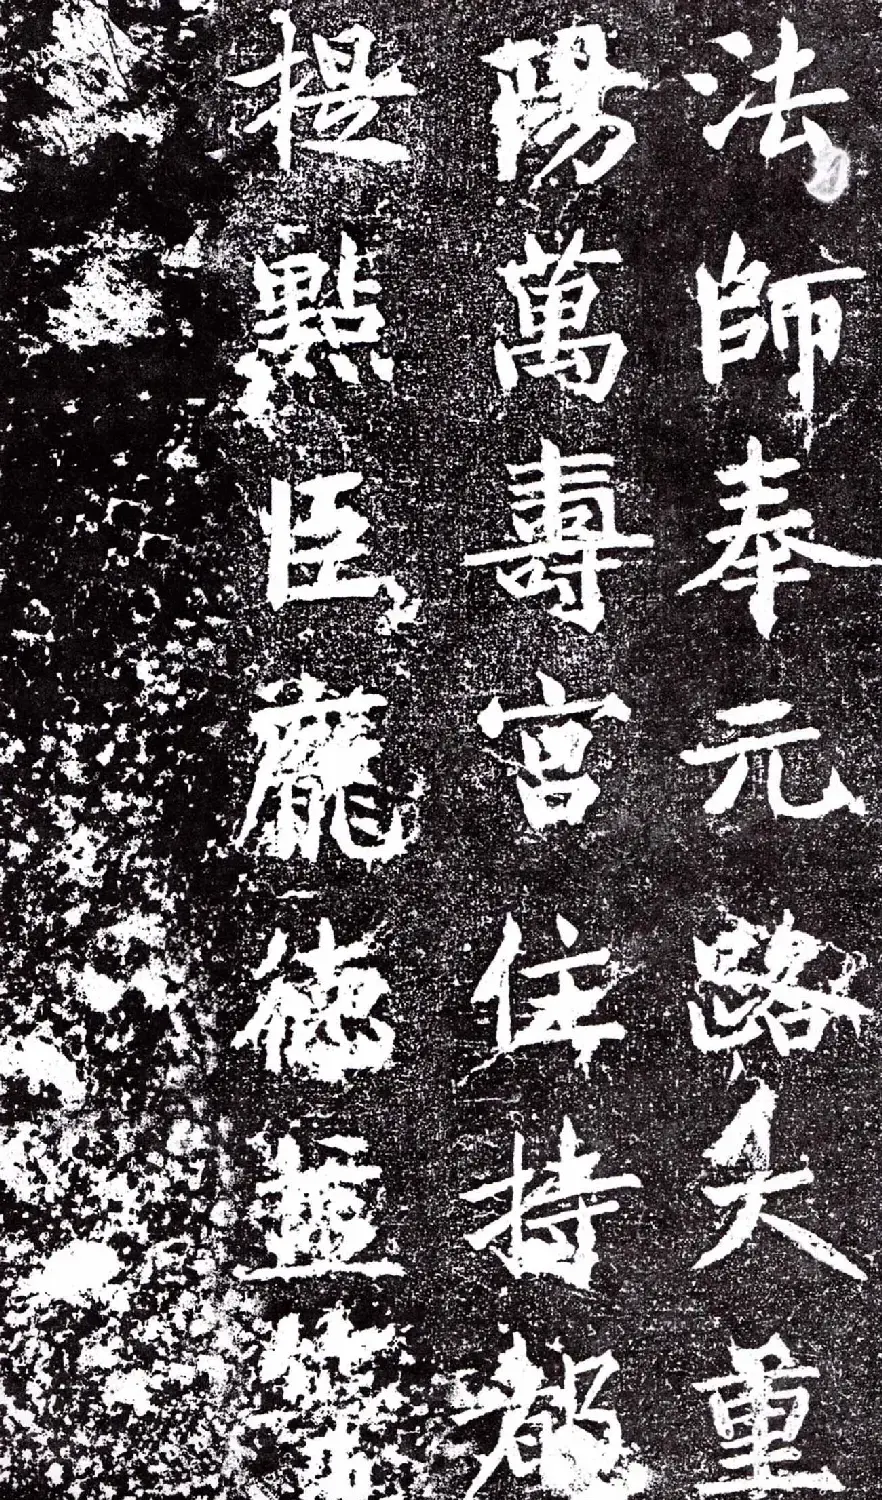 法師奉元路大重
陽萬壽宮住持都
提點臣龐德益等